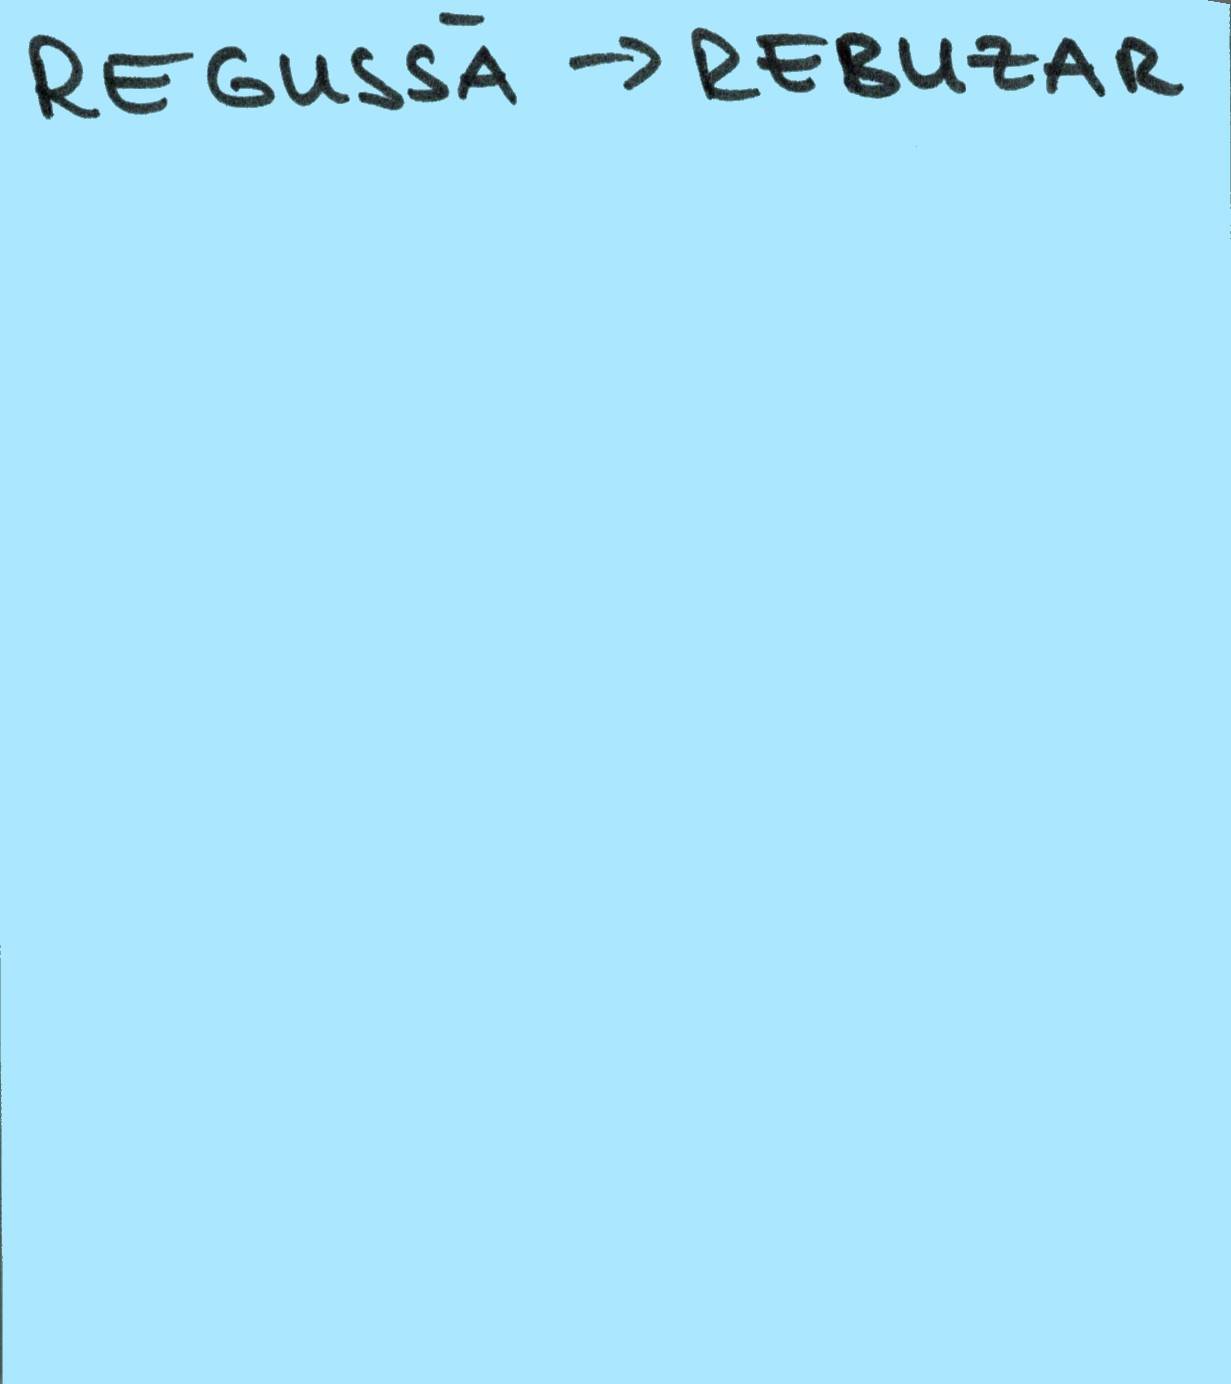 REGUSSĀ → REBUZAR